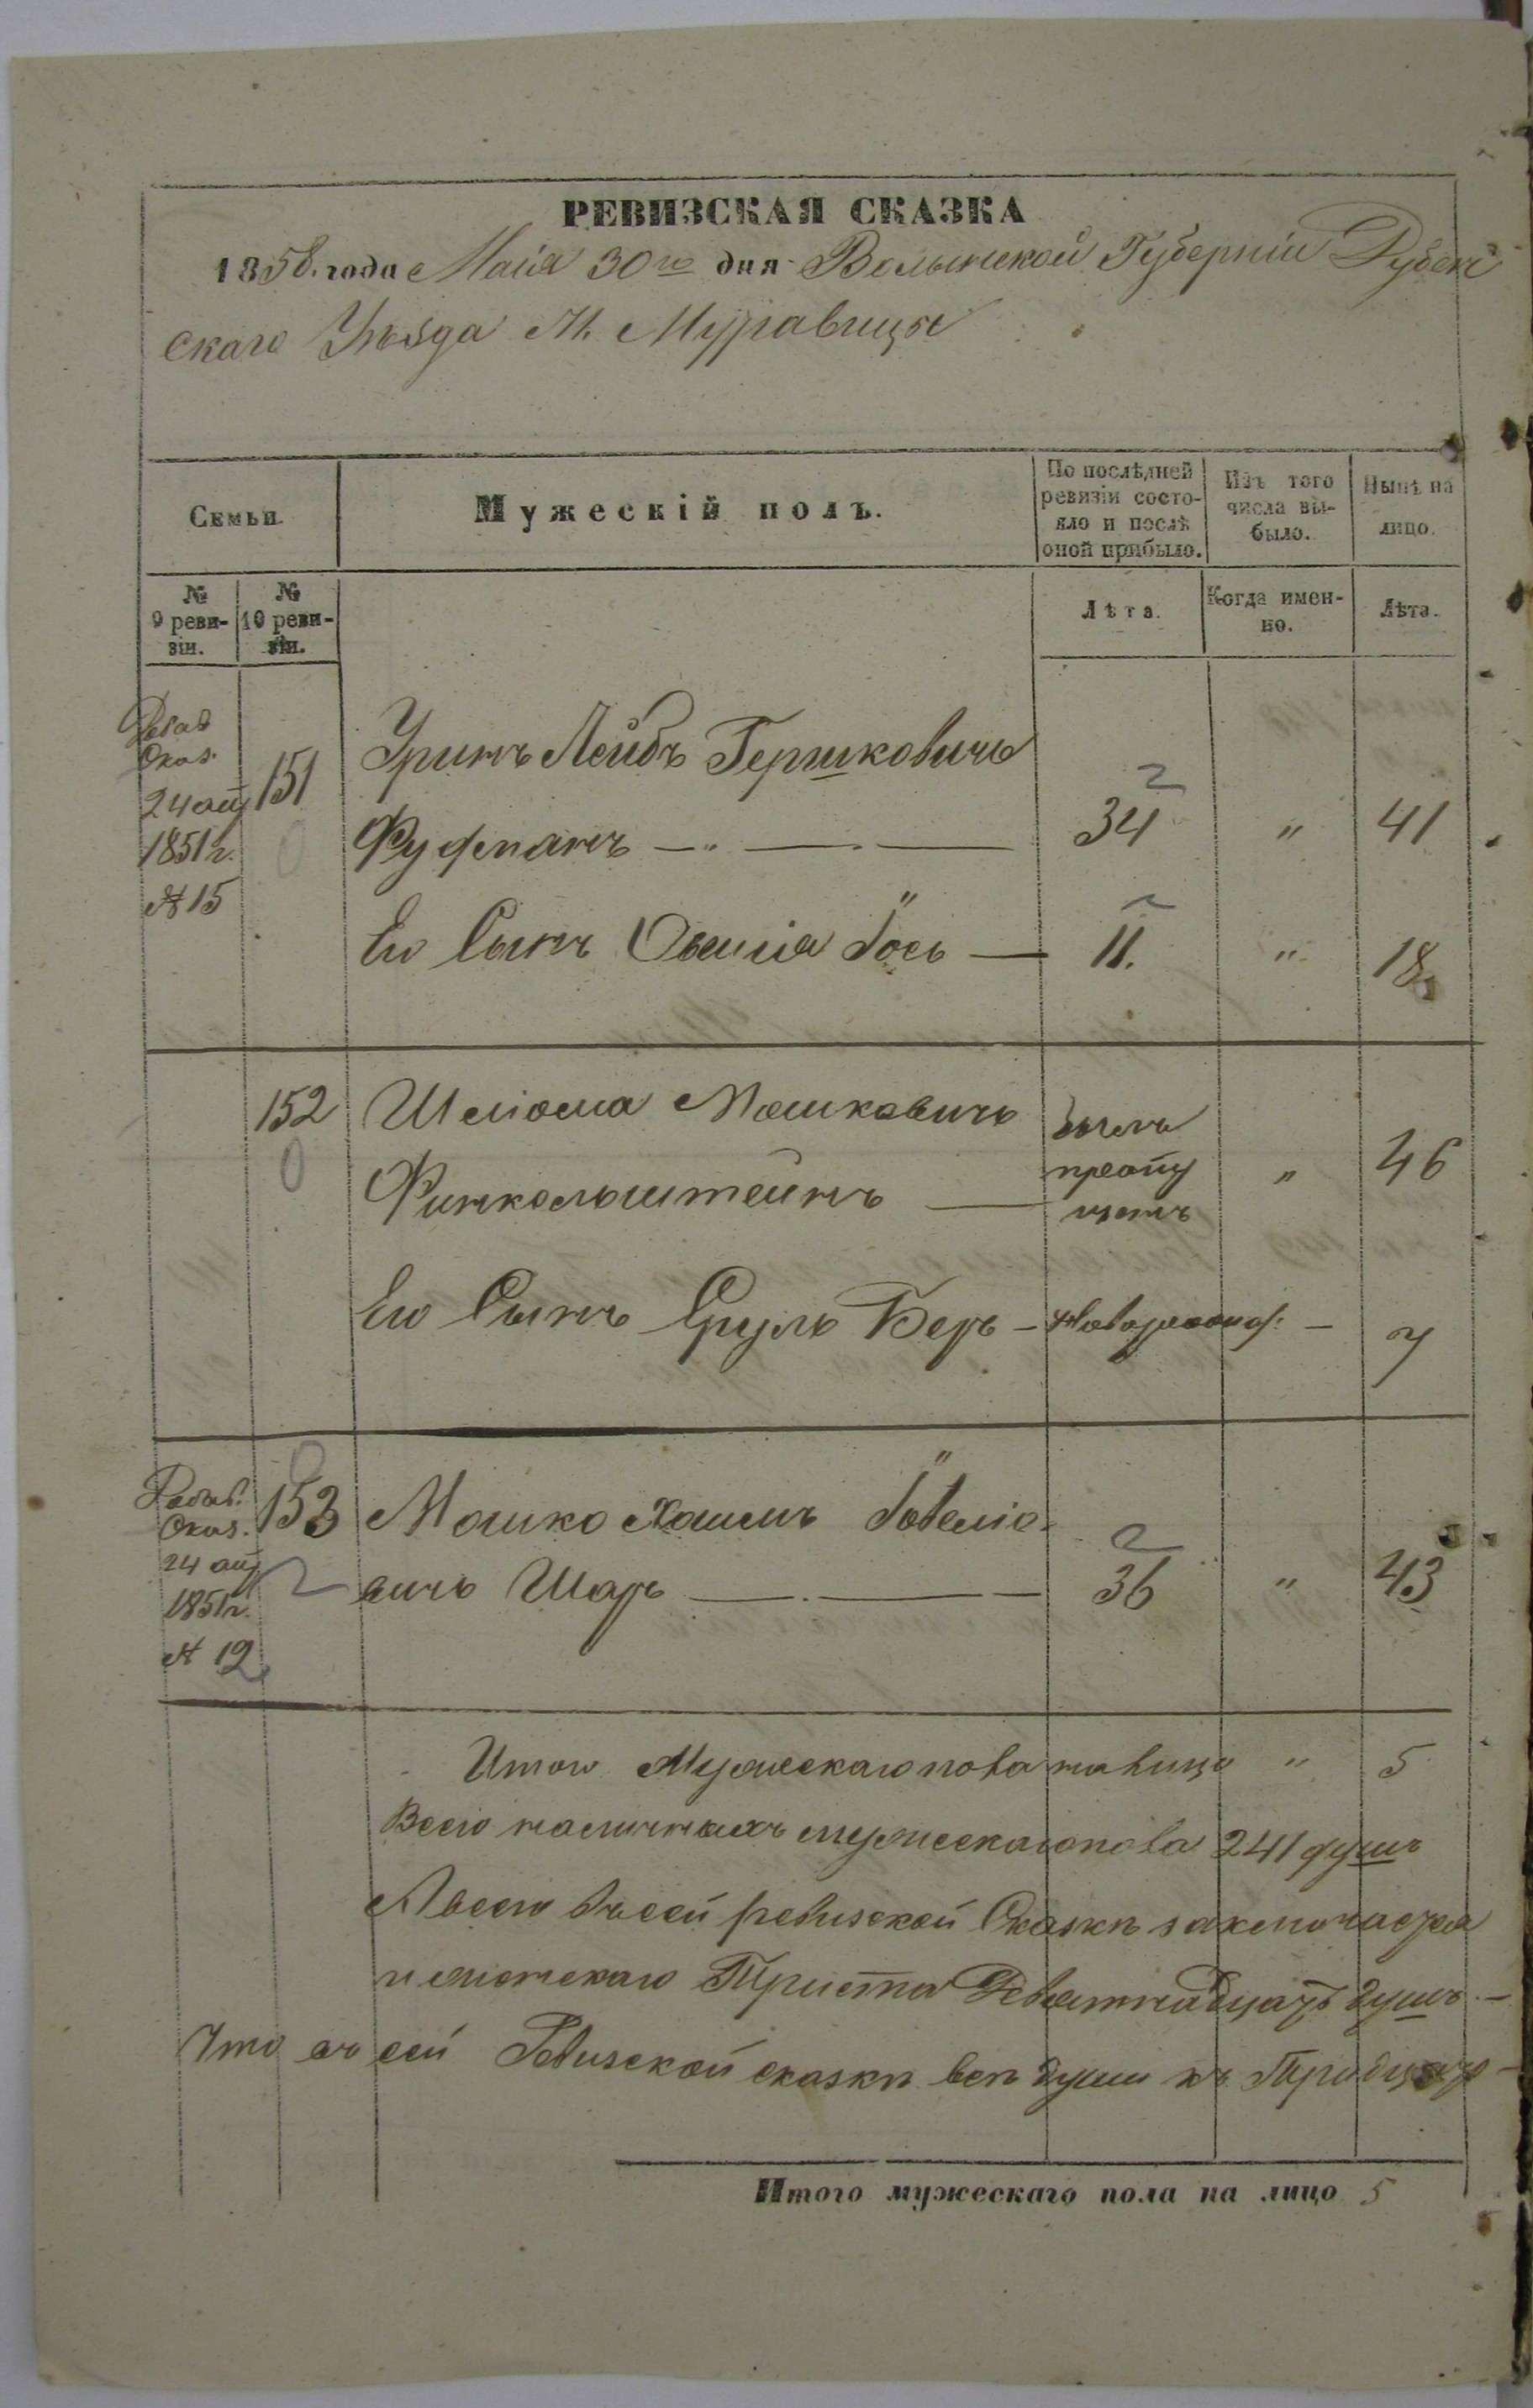 РЕВИЗСКАЯ СКАЗКА
1858. года Маія 30го дня Волынской Губерніи Дубен
скаго Уѣзда М. Муравицы
Семьи
Мужескій полъ.
По послѣдней ревизіи состояло и послѣ оной прибыло.
Изъ того числа выбыло.
Нынѣ на лицо.
№ 9 ревизіи.
№ 10 ревизіи.
Лѣта.
Когда именно.
Лѣта.
Доба
Сказ.
24 авг
1851 г.
№ 15
151
Уринъ Лейбъ Гершковичъ
Фуфманъ — 34 " 41
Его Сынъ Іось — 11. " 18.
152 Шліома Мошковичъ былъ
Финкольштейнъ — пропу " 46
щенъ
Его Сынъ Сруль Беръ — новорожд: — 7
Добав.
Сказ.
24 авг
1851 г.
№ 12
153 Мошко Хаимъ Іовеліо-
вичъ Шаръ — 36 " 43
Итого Мужескаго пола на лицо " 5
Всего наличныхъ мужескаго пола 241 душъ
А всего въ сей ревизской Сказкѣ заключается
и женскаго Триста Девятнадцать душъ —
Что въ сей Ревизской сказкѣ всѣ души къ
Итого мужескаго пола на лицо 5